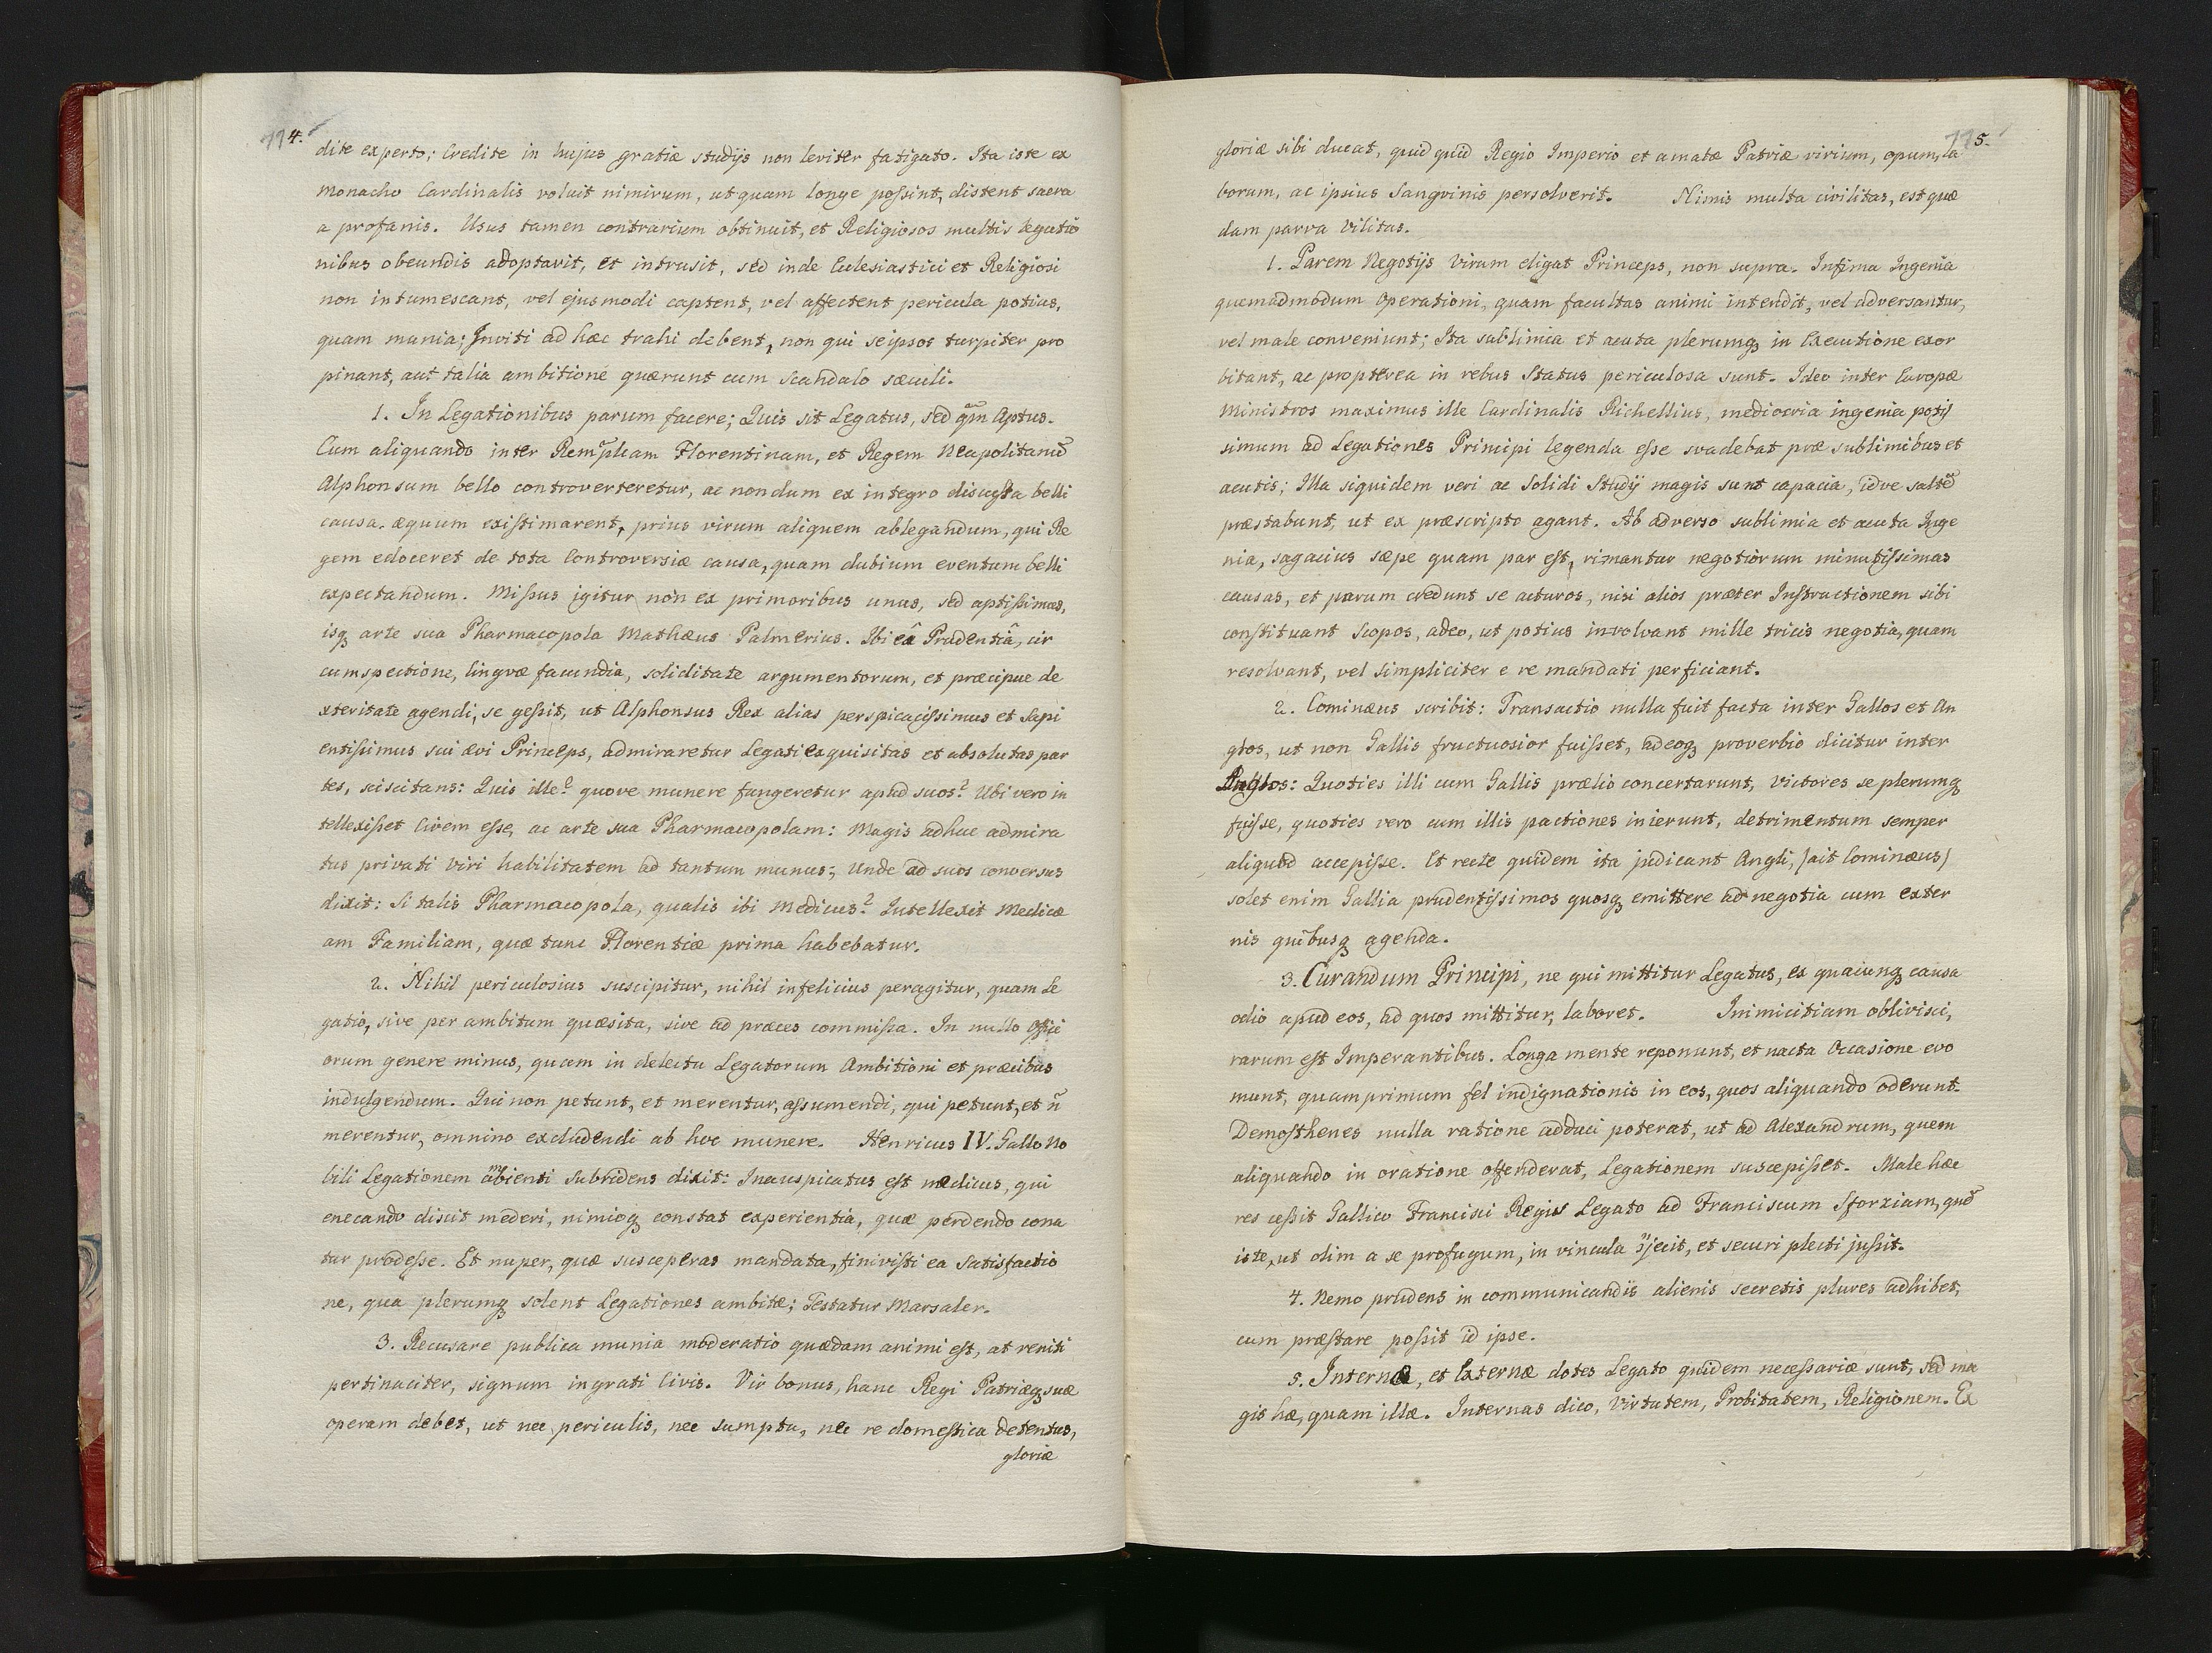 114.
dite experto; Credite in hujus gratiæ studijs non leviter fatigato. Ita iste ex
monacho Cardinalis voluit nimirum, ut quam longe possint, distent sacra
a profanis. Usus tamen contrarium obtinuit, et Religiosos multis legatio
nibus obeundis adoptavit, et intrusit, sed inde Eclesiastici et Religiosi
non intumescant, vel ejusmodi captent, vel affectent pericula potius,
quam munia; Inviti ad hæc trahi debent, non qui seipsos turpiter pro
pinant, aut talia ambitione quærunt cum scandalo sæculi.
1. In Legationibus parum facere; Quis sit Legatus, sed qm̃ Aptus.
Cum aliquando inter Remp̃leam Florentinam, et Regem Neapolitanũ
Alphonsum bello controverteretur, ac nondum ex integro discussa belli
causa. æquum existimarent, prius virum aliquem ablegandum, qui Re
gem edoceret de tota Controversiæ causa, quam dubium eventum belli
expectandum. Missus igitur non ex primoribus unus, sed aptissimus,
isq₃ arte sua Pharmacopola Mathæus Palmerius. Ibi eâ Prudentiâ, cir
cumspectione, lingvæ facundia, soliditate argumentorum, et præcipue de
xteritate agendi, se gessit, ut Alphonsus Rex alias perspicacissimus et sapi
entissimus sui ævi Princeps, admiraretur Legati exquisitas et absolutas par
tes, sciscitans: Quis ille? quove munere fungeretur apud suos? Ubi vero in
tellexisset Civem esse, ac arte sua Pharmacopolam: Magis adhuc admira
tus privati viri habilitatem ad tantum munus; Unde ad suos conversus
dixit: Si talis Pharmacopola, qualis ibi Medicus? Intellexit Medicæ
am Familiam, quæ tunc Florentiæ prima habebatur.
2. Nihil periculosius suscipitur, nihil infelicius peragitur, quam Le
gatio, sive per ambitum quæsita, sive ad præces commissa. In nullo Offici
orum genere minus, quam in delectu Legatorum Ambitioni et præcibus
indulgendum. Qui non petunt, et merentur, assumendi, qui petunt, et ñ
merentur, omnino excludendi ab hoc munere. Henricus IV. Gallo No
bili Legationem ambienti subridens dixit: Inauspicatus est medicus, qui
enecando discit mederi, nimioq₃ constat experientia, quæ perdendo cona
tur prodesse. Et nuper, quæ susceperas mandata, finivisti ea Satisfactio
ne, qua plerumq₃ solent Legationes ambitæ; Testatur Marsaler.
3. Recusare publica munia moderatio quædam animi est, at reniti
pertinaciter, signum ingrati Civis. Vir bonus, hanc Regi Patriæq₃ suæ
operam debet, ut nec periculis, nec sumptu, nec re domestica detentus,
gloriæ
115.
gloriæ sibi ducat, quid quid Regio Imperio et amatæ Patriæ virium, opum, la
borum, ac ipsius Sangvinis persolverit. Nimis multa civilitas, est quæ
dam parva Vilitas.
1. Parem Negotijs Virum eligat Princeps, non supra. Infima Ingenia
quemadmodum Operationi, quam facultas animi intendit, vel adversantur,
vel male conveniunt; Ita sublimia et acuta plerumq₃ in Executione exor
bitant, ac propterea in rebus Status periculosa sunt. Ideo inter Europæ
Ministros maximus ille Cardinalis Richellius, mediocria ingenia potis
simum ad Legationes Principi legenda esse svadebat præ sublimibus et
acutis; Illa siquidem veri ac Solidi Studij magis sunt capacia, idve saltẽ
præstabunt, ut ex præscripto agant. Ab adverso sublimia et acuta Inge
nia, sagacius sæpe quam par est, rimantur negotiorum minutissimas
causas, et parum credunt se acturos, nisi alios præter Instructionem sibi
constituant Scopos, adeo, ut potius involvant mille tricis negotia, quam
resolvant, vel simpliciter e re mandati perficiant.
2. Cominæus scribit: Transactio nulla fuit facta inter Gallos et An
glos, ut non Gallis fructuosior fuisset, adeoq₃ proverbio dicitur inter
Anglos: Quoties illi cum Gallis prælio concertarunt, Victores se plerumq₃
fuisse, quoties vero cum illis pactiones inierunt, detrimentum semper
aliquod accepisse. Et recte quidem ita judicant Angli, /ait Cominæus/
solet enim Gallia prudentissimos quosq₃ emittere ad negotia cum exter
nis quibusq₃ agenda.
3. Curandum Principi, ne qui mittitur Legatus, ex quacunq₃ causa
odio apud eos, ad quos mittitur, laboret. Inimicitiam oblivisci,
rarum est Imperantibus. Longa mente reponunt, et nacta Occasione evo
munt, quamprimum fel indignationis in eos, quos aliquando oderunt.
Demosthenes nulla ratione adduci poterat, ut ad Alexandrum, quem
aliquando in oratione offenderat, Legationem suscepisset. Male hæc
res cessit Gallico Francisci Regis Legato ad Franciscum Sforziam, quẽ
iste, ut olim a se profugum, in vincula conjecit, et securi plecti jussit.
4. Nemo prudens in communicandis alienis secretis plures adhibet,
cum præstare possit id ipse.
5. Internæ, et Externæ dotes Legato quidem necessariæ sunt, sed ma
gis hæ, quam illæ. Internas dico, Virtutem, Probitatem, Religionem. Ex